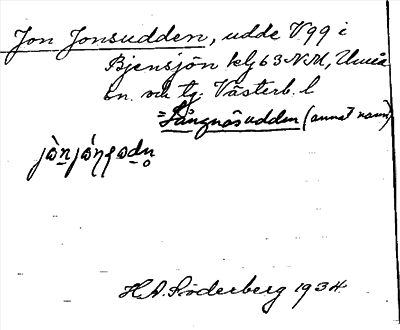 Jon Jonsudden, udde V99 i
Bjensjön klg 63 N.M, Umeå
sn. och tg. Västerb. l
= Långnäsudden (annat namn)
H.A. Söderberg 1934